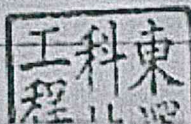 東
科
工程